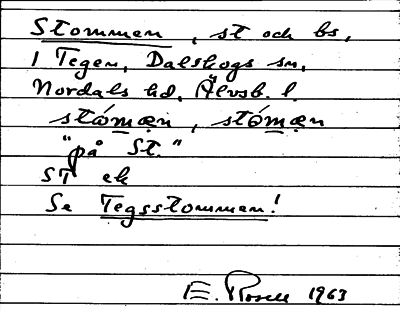 Stommen, st och bs,
I Tegen, Dalskogs sn,
Nordals hd, Älvsb. l.
stómæn, stómæn
"på St."
ST ek
Se Tegsstommen!
E. Rosell 1963